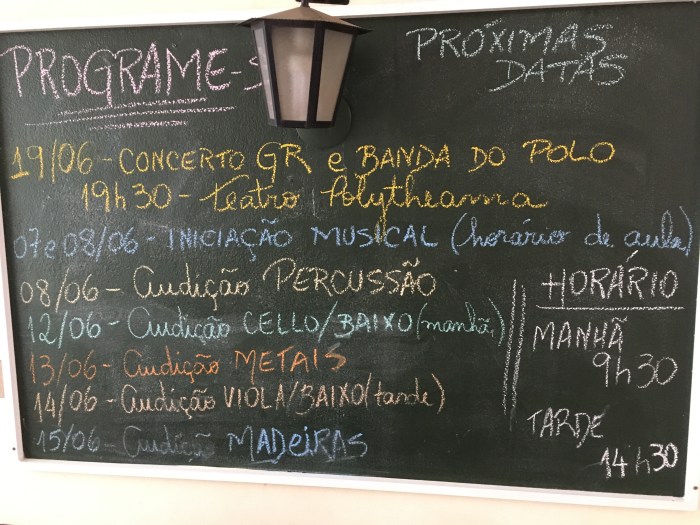 PROGRAME-S
PRÓXIMAS
DATAS
19/06 - CONCERTO GR e BANDA DO POLO
19h30 - Teatro Polytheama
07 e 08/06 - INICIAÇÃO MUSICAL (horário de aula)
08/06 - Audição PERCUSSÃO
12/06 - Audição CELLO/BAIXO (manhã)
13/06 - Audição METAIS
14/06 - Audição VIOLA/BAIXO (tarde)
15/06 - Audição MADEIRAS
HORÁRIO
MANHÃ
9h30
TARDE
14h30